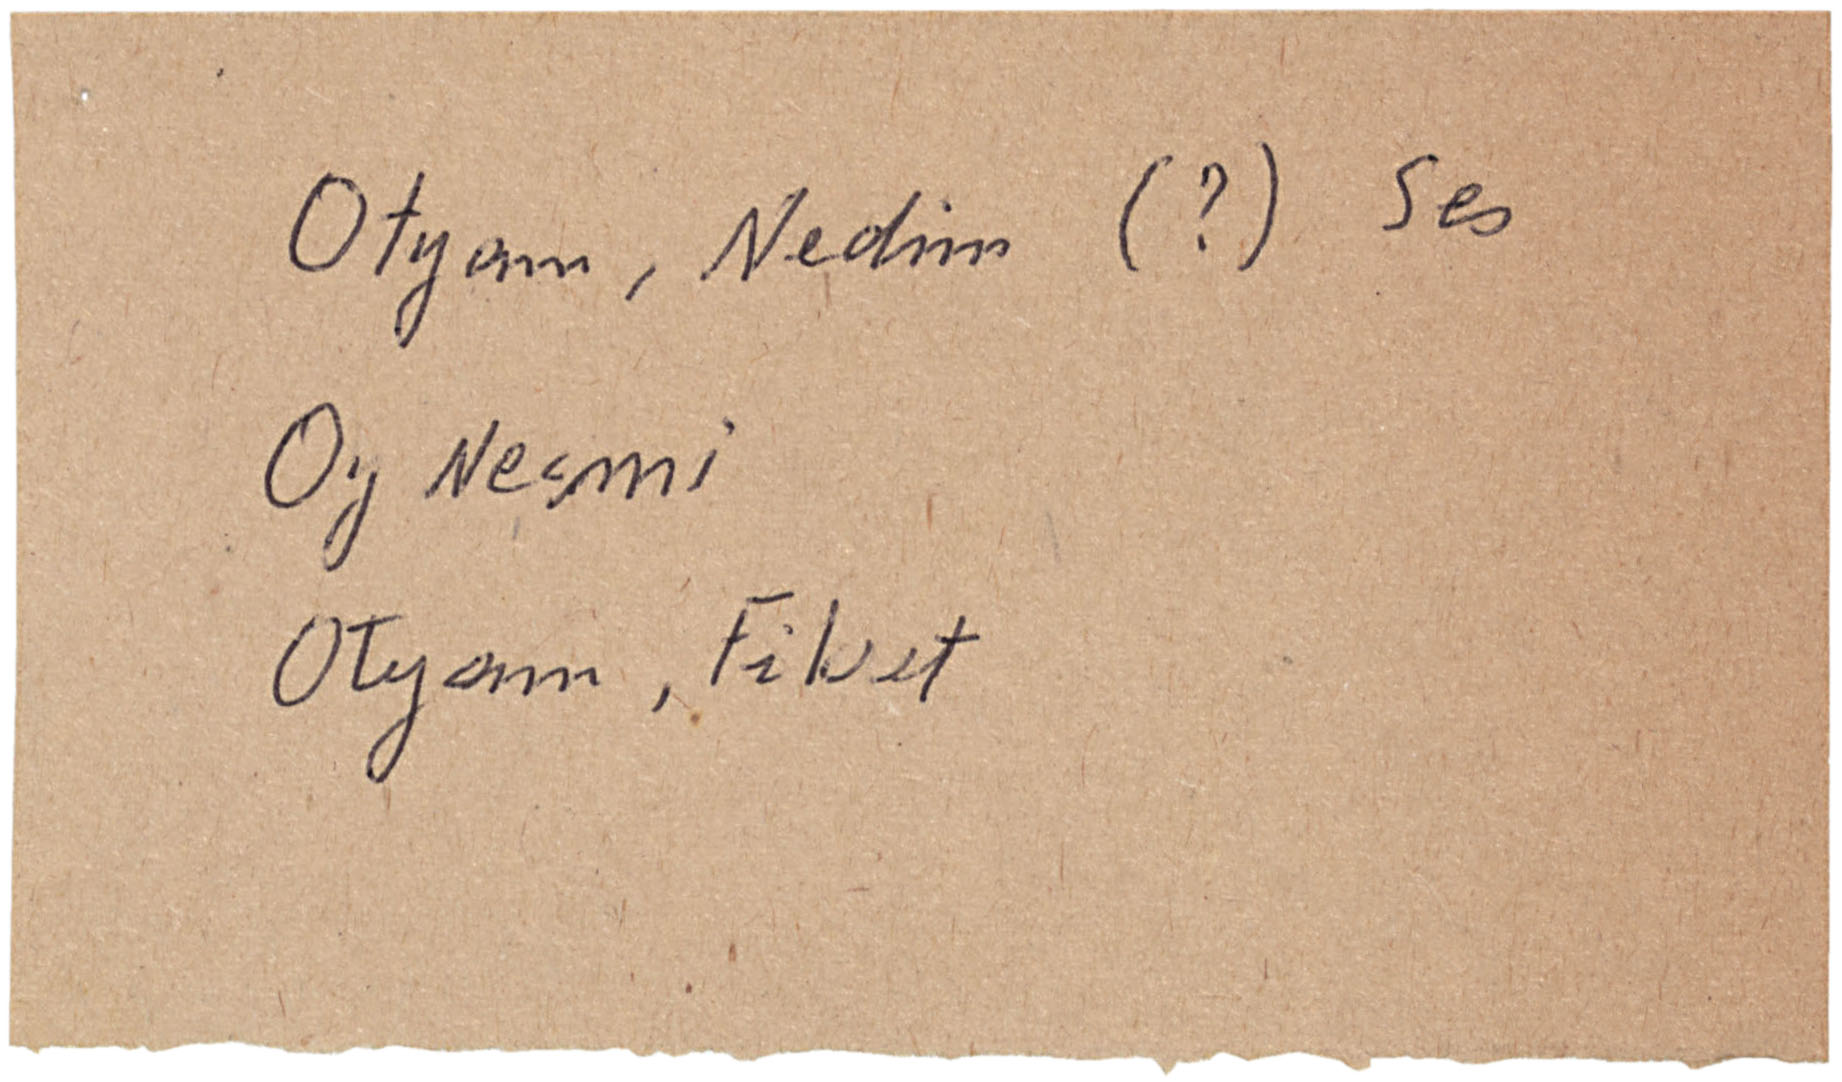 Otyam, Nedim (?) Ses
Oy Nesmi
Otyam, Fikret